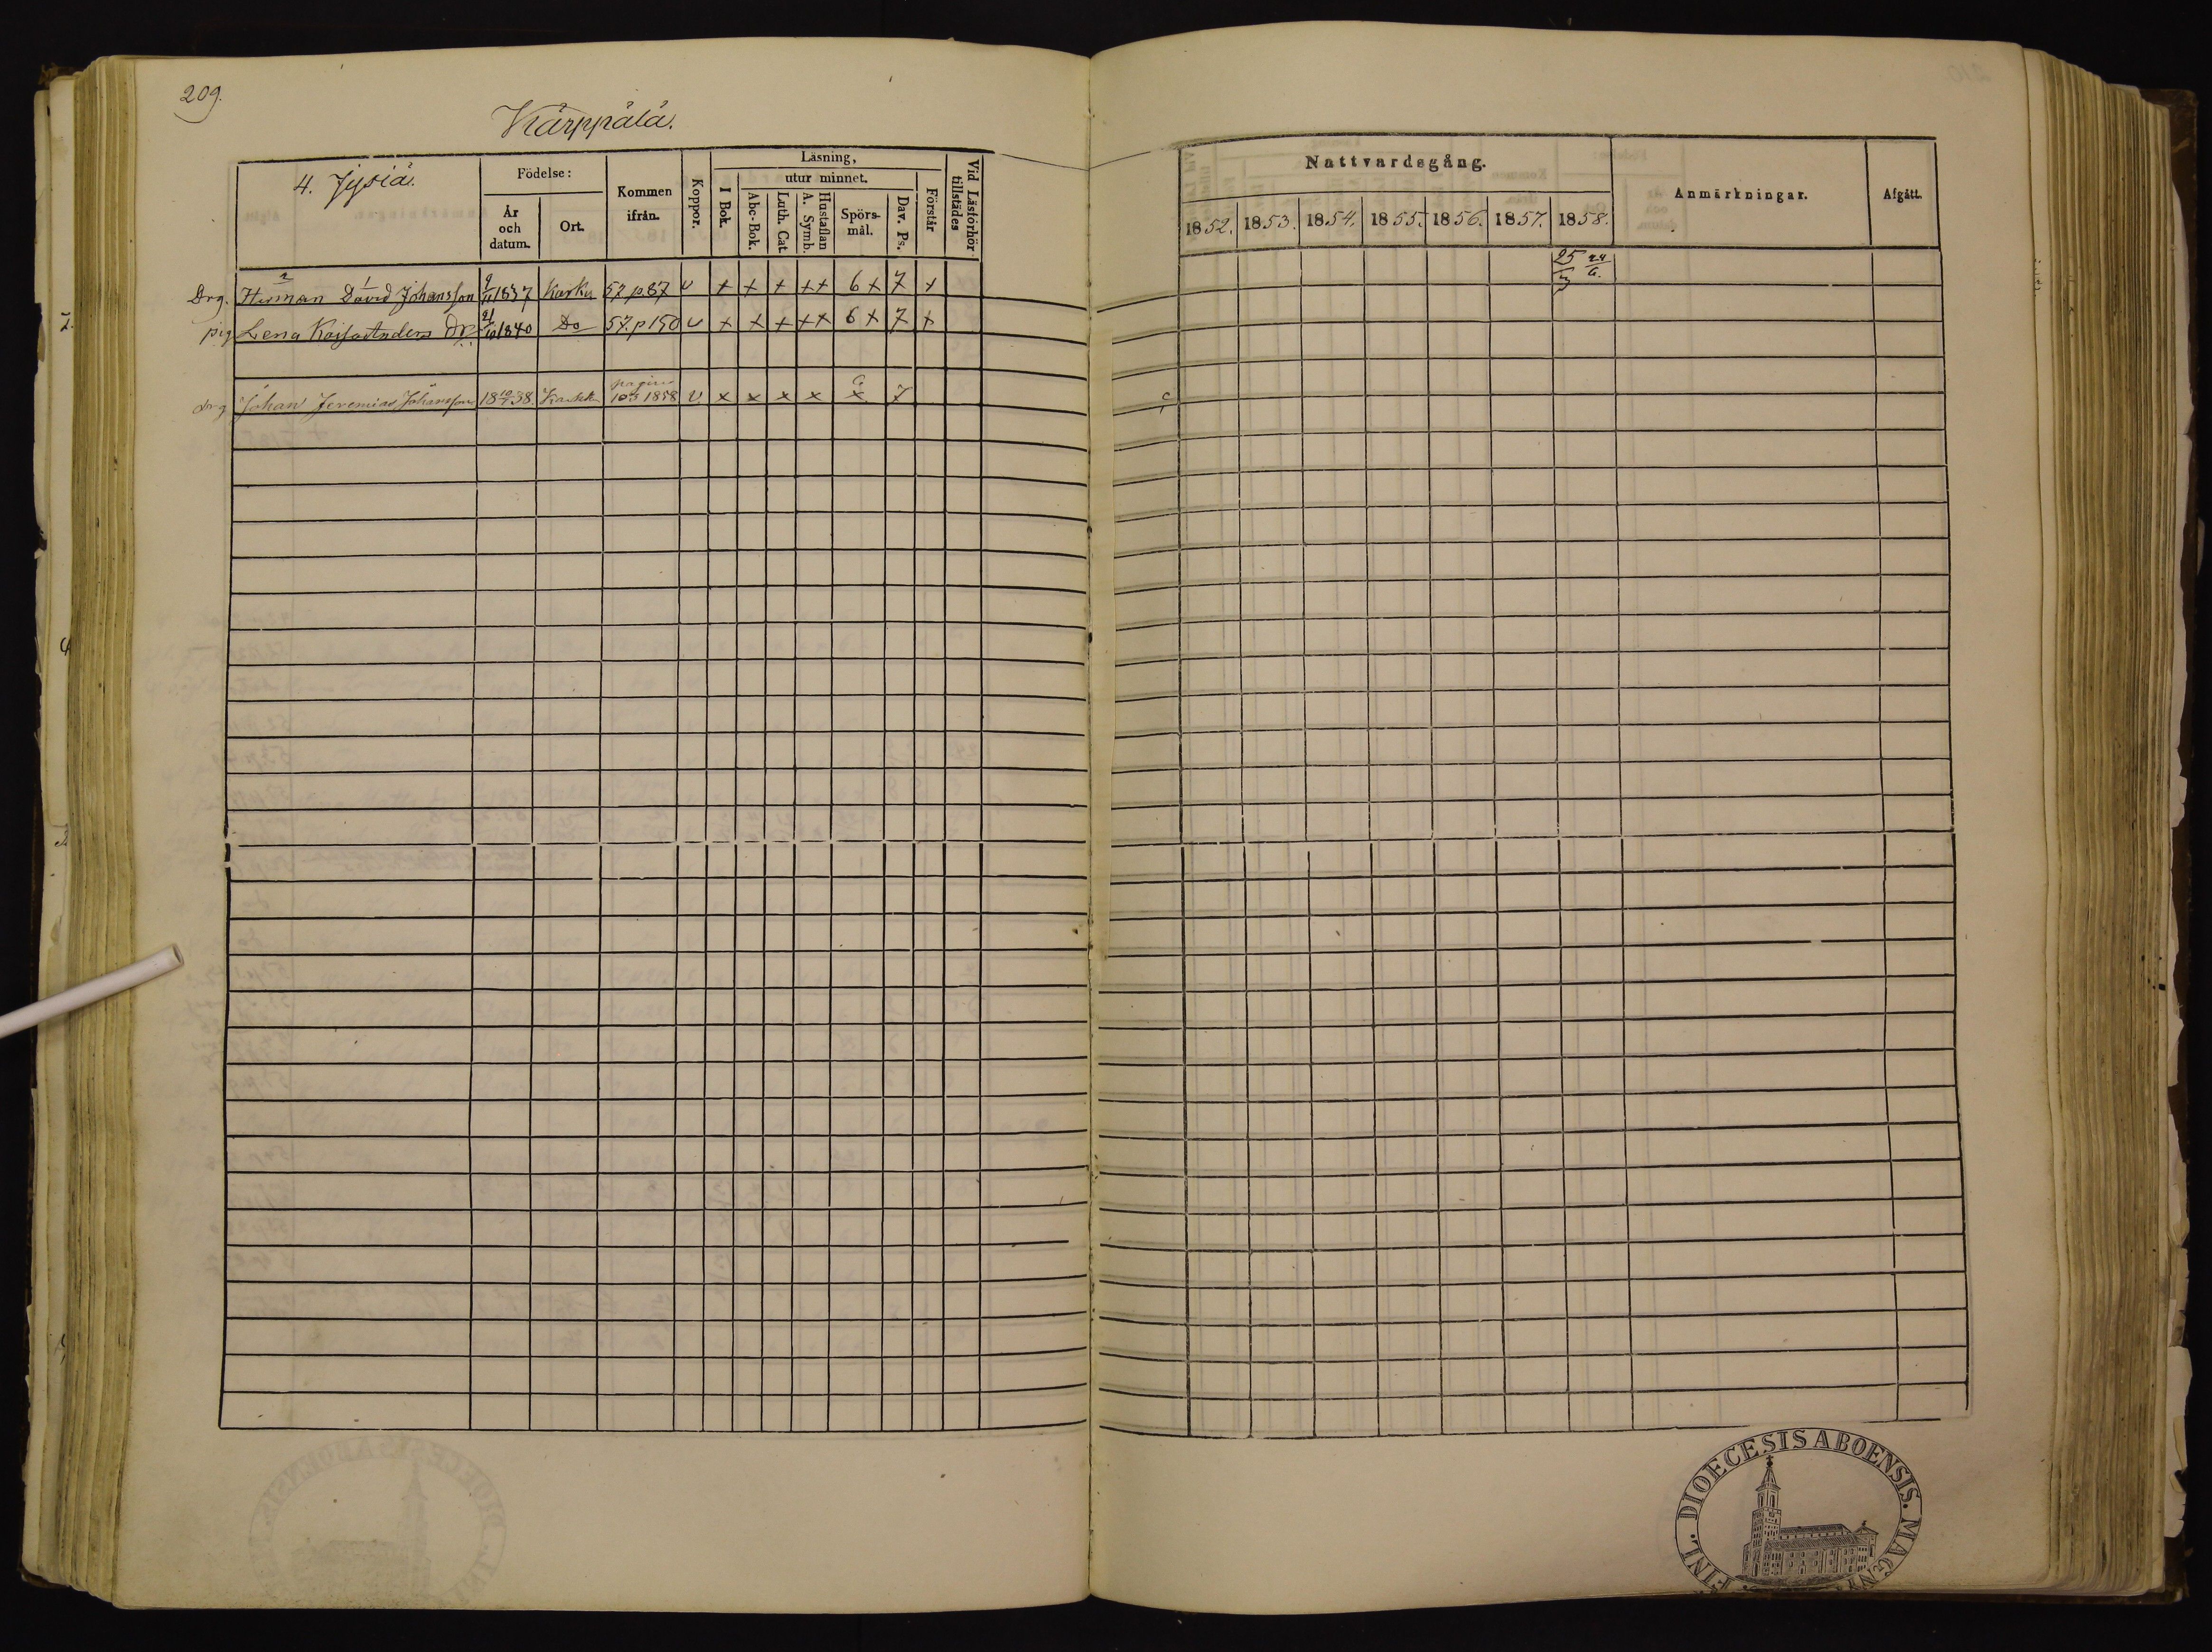 209.
Kärppälä.
4. Jysiä.
Födelse:
År och datum.
Ort.
Kommen ifrån.
Koppor.
Läsning,
utur minnet.
I Bok.
Abc-Bok.
Luth. Cat.
Hustaflan A. Symb.
Spörsmål.
Dav. Ps.
Förstår
Vid Läsförhör tillstädes
Nattvardsgång.
1852. 1853. 1854. 1855. 1856. 1857. 1858.
Anmärkningar.
Afgått.
Drg. Herman David Johansson 9/11 1837 Karku 57 p 87 v + + + ++ 6+ 7 + 25/3 24/6.
pig Lena Kaisa Anders Dr 21/10 1840 Do 57. p 150 v + + + ++ 6+ 7 +
drg Johan Jeremias Johansson 18 38. pagina 1858 v. x x x x 6 x 7
FINL. DIOECESIS ABOENSIS. MAGNI